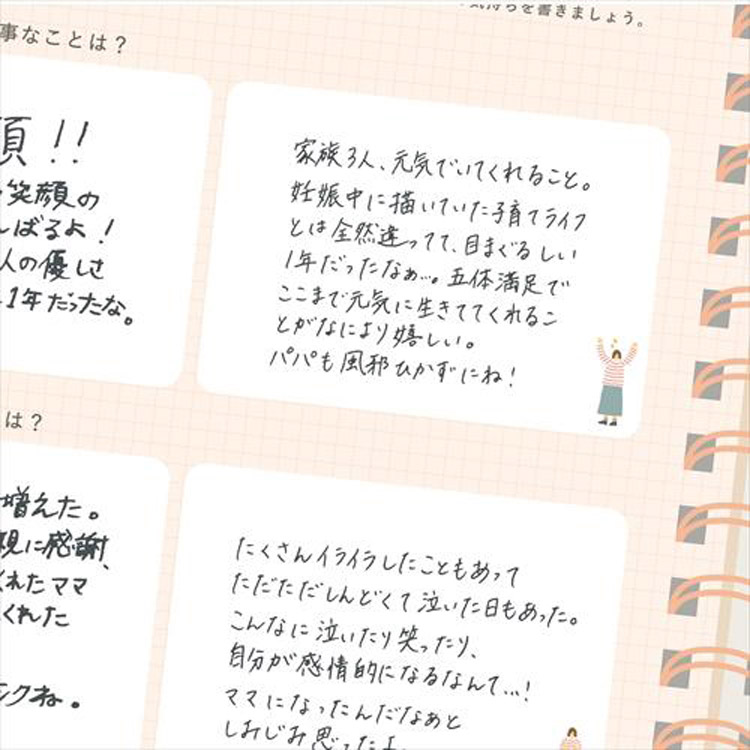 気持ちを書きましょう。
事なことは？
顔!!
笑顔の
んばるよ！
人の優しさ
1年だったな。
家族3人、元気でいてくれること。
妊娠中に描いていた子育てライフ
とは全然違ってて、目まぐるしい
1年だったなぁ…。五体満足で
ここまで元気に生きててくれるこ
とがなにより嬉しい。
パパも風邪ひかずにね！
は？
増えた。
親に感謝、
くれたママ
くれた
ね。
たくさんイライラしたこともあって
ただただしんどくて泣いた日もあった。
こんなに泣いたり笑ったり、
自分が感情的になるなんて…！
ママになったんだなぁと
しみじみ思ったよ。